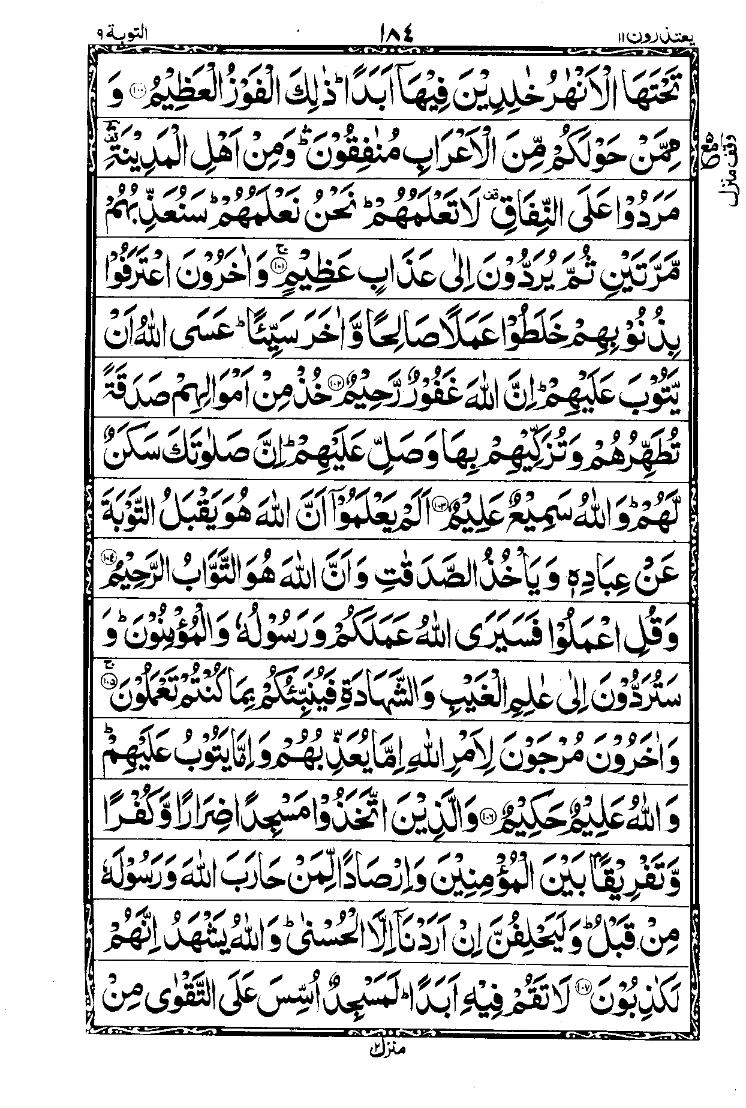 یعتذرون ۱۱ ۱۸٤ التوبة ۹
تَحْتَهَا الْاَنْهٰرُ خٰلِدِیْنَ فِیْهَاۤ اَبَدًاؕ ذٰلِكَ الْفَوْزُ الْعَظِیْمُ ۝۱۰۰ وَ
مِمَّنْ حَوْلَكُمْ مِّنَ الْاَعْرَابِ مُنٰفِقُوْنَ ؕۛ وَمِنْ اَهْلِ الْمَدِیْنَةِ ؔۛ
مَرَدُوْا عَلَی النِّفَاقِ ۫ لَا تَعْلَمُهُمْؕ نَحْنُ نَعْلَمُهُمْؕ سَنُعَذِّبُهُمْ
مَّرَّتَیْنِ ثُمَّ یُرَدُّوْنَ اِلٰی عَذَابٍ عَظِیْمٍ ۝۱۰۱ۚ وَاٰخَرُوْنَ اعْتَرَفُوْا
بِذُنُوْبِهِمْ خَلَطُوْا عَمَلًا صَالِحًا وَّاٰخَرَ سَیِّئًاؕ عَسَی اللّٰهُ اَنْ
یَّتُوْبَ عَلَیْهِمْؕ اِنَّ اللّٰهَ غَفُوْرٌ رَّحِیْمٌ ۝۱۰۲ خُذْ مِنْ اَمْوَالِهِمْ صَدَقَةً
تُطَهِّرُهُمْ وَتُزَكِّیْهِمْ بِهَا وَصَلِّ عَلَیْهِمْؕ اِنَّ صَلٰوتَكَ سَكَنٌ
لَّهُمْؕ وَاللّٰهُ سَمِیْعٌ عَلِیْمٌ ۝۱۰۳ اَلَمْ یَعْلَمُوْۤا اَنَّ اللّٰهَ هُوَ یَقْبَلُ التَّوْبَةَ
عَنْ عِبَادِهٖ وَیَاْخُذُ الصَّدَقٰتِ وَاَنَّ اللّٰهَ هُوَ التَّوَّابُ الرَّحِیْمُ ۝۱۰٤
وَقُلِ اعْمَلُوْا فَسَیَرَی اللّٰهُ عَمَلَكُمْ وَرَسُوْلُهٗ وَالْمُؤْمِنُوْنَؕ وَ
سَتُرَدُّوْنَ اِلٰی عٰلِمِ الْغَیْبِ وَالشَّهَادَةِ فَیُنَبِّئُكُمْ بِمَا كُنْتُمْ تَعْمَلُوْنَ ۝۱۰۵ۚ
وَاٰخَرُوْنَ مُرْجَوْنَ لِاَمْرِ اللّٰهِ اِمَّا یُعَذِّبُهُمْ وَاِمَّا یَتُوْبُ عَلَیْهِمْؕ
وَاللّٰهُ عَلِیْمٌ حَكِیْمٌ ۝۱۰۶ وَالَّذِیْنَ اتَّخَذُوْا مَسْجِدًا ضِرَارًا وَّكُفْرًا
وَّتَفْرِیْقًۢا بَیْنَ الْمُؤْمِنِیْنَ وَاِرْصَادًا لِّمَنْ حَارَبَ اللّٰهَ وَرَسُوْلَهٗ
مِنْ قَبْلُؕ وَلَیَحْلِفُنَّ اِنْ اَرَدْنَاۤ اِلَّا الْحُسْنٰیؕ وَاللّٰهُ یَشْهَدُ اِنَّهُمْ
لَكٰذِبُوْنَ ۝۱۰۷ لَا تَقُمْ فِیْهِ اَبَدًاؕ لَمَسْجِدٌ اُسِّسَ عَلَی التَّقْوٰی مِنْ
منزل ۲
مع
وقف منزل